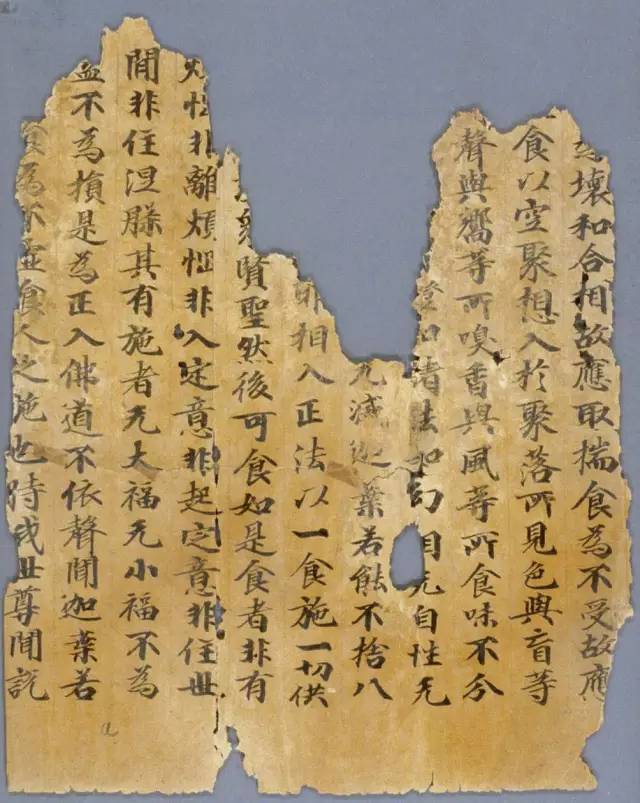 壞和合相故應取揣食為不受故應
食以空聚想入於聚落所見色與盲等
聲與嚮等所嗅香與風等所食味不分
證知諸法如幻相无自性无
无滅迦葉若能不捨八
邪相入正法以一食施一切供
衆賢聖然後可食如是食者非有
惱非離煩惱非入定意非起定意非住世
間非住涅槃其有施者无大福无小福不為
益不為損是為正入佛道不依聲聞迦葉若
食為不空食人之施也時我世尊聞說